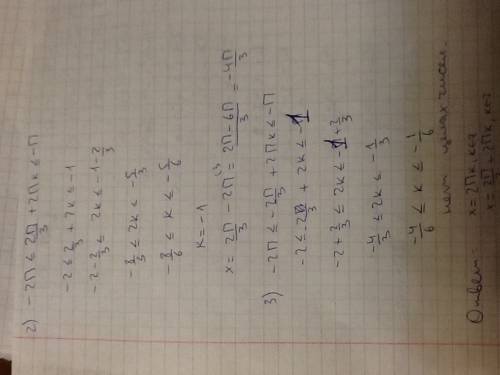 2) -2π ≤ 2π/3 + 2πк ≤ -π
-2 ≤ 2/3 + 2к ≤ -1
-2 - 2/3 ≤ 2к ≤ -1 - 2/3
-8/3 ≤ 2к ≤ -5/3
-8/6 ≤ к ≤ -5/6
к = -1
x = 2π/3 - 2π^(3 = (2π - 6π)/3 = -4π/3
3) -2π ≤ -2π/3 + 2πк ≤ -π
-2 ≤ -2/3 + 2к ≤ -1
-2 + 2/3 ≤ 2к ≤ -1 + 2/3
-4/3 ≤ 2к ≤ -1/3
-4/6 ≤ к ≤ -1/6
нет целых чисел.
Ответ x = 2πк, к∈z
x = ± 2π/3 + 2πк, к∈z